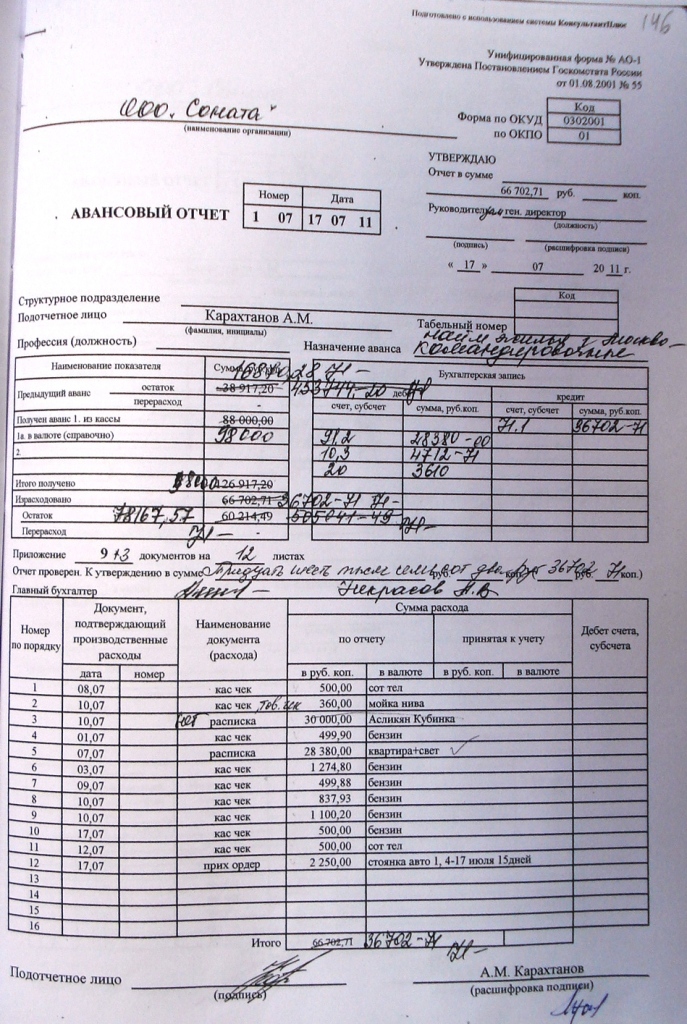 Подготовлено с использованием системы КонсультантПлюс
146
Унифицированная форма № АО-1
Утверждена Постановлением Госкомстата России
от 01.08.2001 № 55
ООО „Соната“
(наименование организации)
Код
Форма по ОКУД 0302001
по ОКПО 01
УТВЕРЖДАЮ
Отчет в сумме
66 702,71 руб. коп.
Руководитель ген. директор
(должность)
(подпись) (расшифровка подписи)
« 17 » 07 20 11 г.
АВАНСОВЫЙ ОТЧЕТ
Номер Дата
1 07 17 07 11
Код
Структурное подразделение
Подотчетное лицо Карахтанов А.М.
(фамилия, инициалы)
Табельный номер
Профессия (должность) Назначение аванса найм жилья г Москва-
командировочные
Наименование показателя Сумма, Бухгалтерская запись
Предыдущий аванс остаток 38 917,20 дебет кредит
перерасход - счет, субсчет сумма, руб.коп. счет, субсчет сумма, руб.коп.
Получен аванс 1. из кассы 88 000,00 71.1 36702-71
1а. в валюте (справочно) 98000 91.2 28380-00
2. 10,3 4712-71
20 3610
Итого получено 98000 126 917,20
Израсходовано 66 702,71 36702-71
Остаток 78167,57 60 214,49 505041-49
Перерасход -
Приложение 9+3 документов на 12 листах
Отчет проверен. К утверждению в сумме Тридцать шесть тысяч семьсот два руб руб. коп. ( 36702 руб. 71 коп.)
Главный бухгалтер Некрасов А.В
Номер по порядку Документ, подтверждающий производственные расходы Наименование документа (расхода) Сумма расхода Дебет счета, субсчета
по отчету принятая к учету
дата номер в руб. коп. в валюте в руб. коп. в валюте
1 08,07 кас чек 500,00 сот тел
2 10,07 кас чек тов. чек 360,00 мойка нива
3 10,07 расписка 30 000,00 Асликян Кубинка
4 01,07 кас чек 499,90 бензин
5 07,07 расписка 28 380,00 квартира+свет
6 03,07 кас чек 1 274,80 бензин
7 09,07 кас чек 499,88 бензин
8 10,07 кас чек 837,93 бензин
9 10,07 кас чек 1 100,20 бензин
10 17,07 кас чек 500,00 бензин
11 12,07 кас чек 500,00 сот тел
12 17,07 прих ордер 2 250,00 стоянка авто 1, 4-17 июля 15дней
13
14
15
16
Итого 66 702,71 36702-71
Подотчетное лицо А.М. Карахтанов
(подпись) (расшифровка подписи)